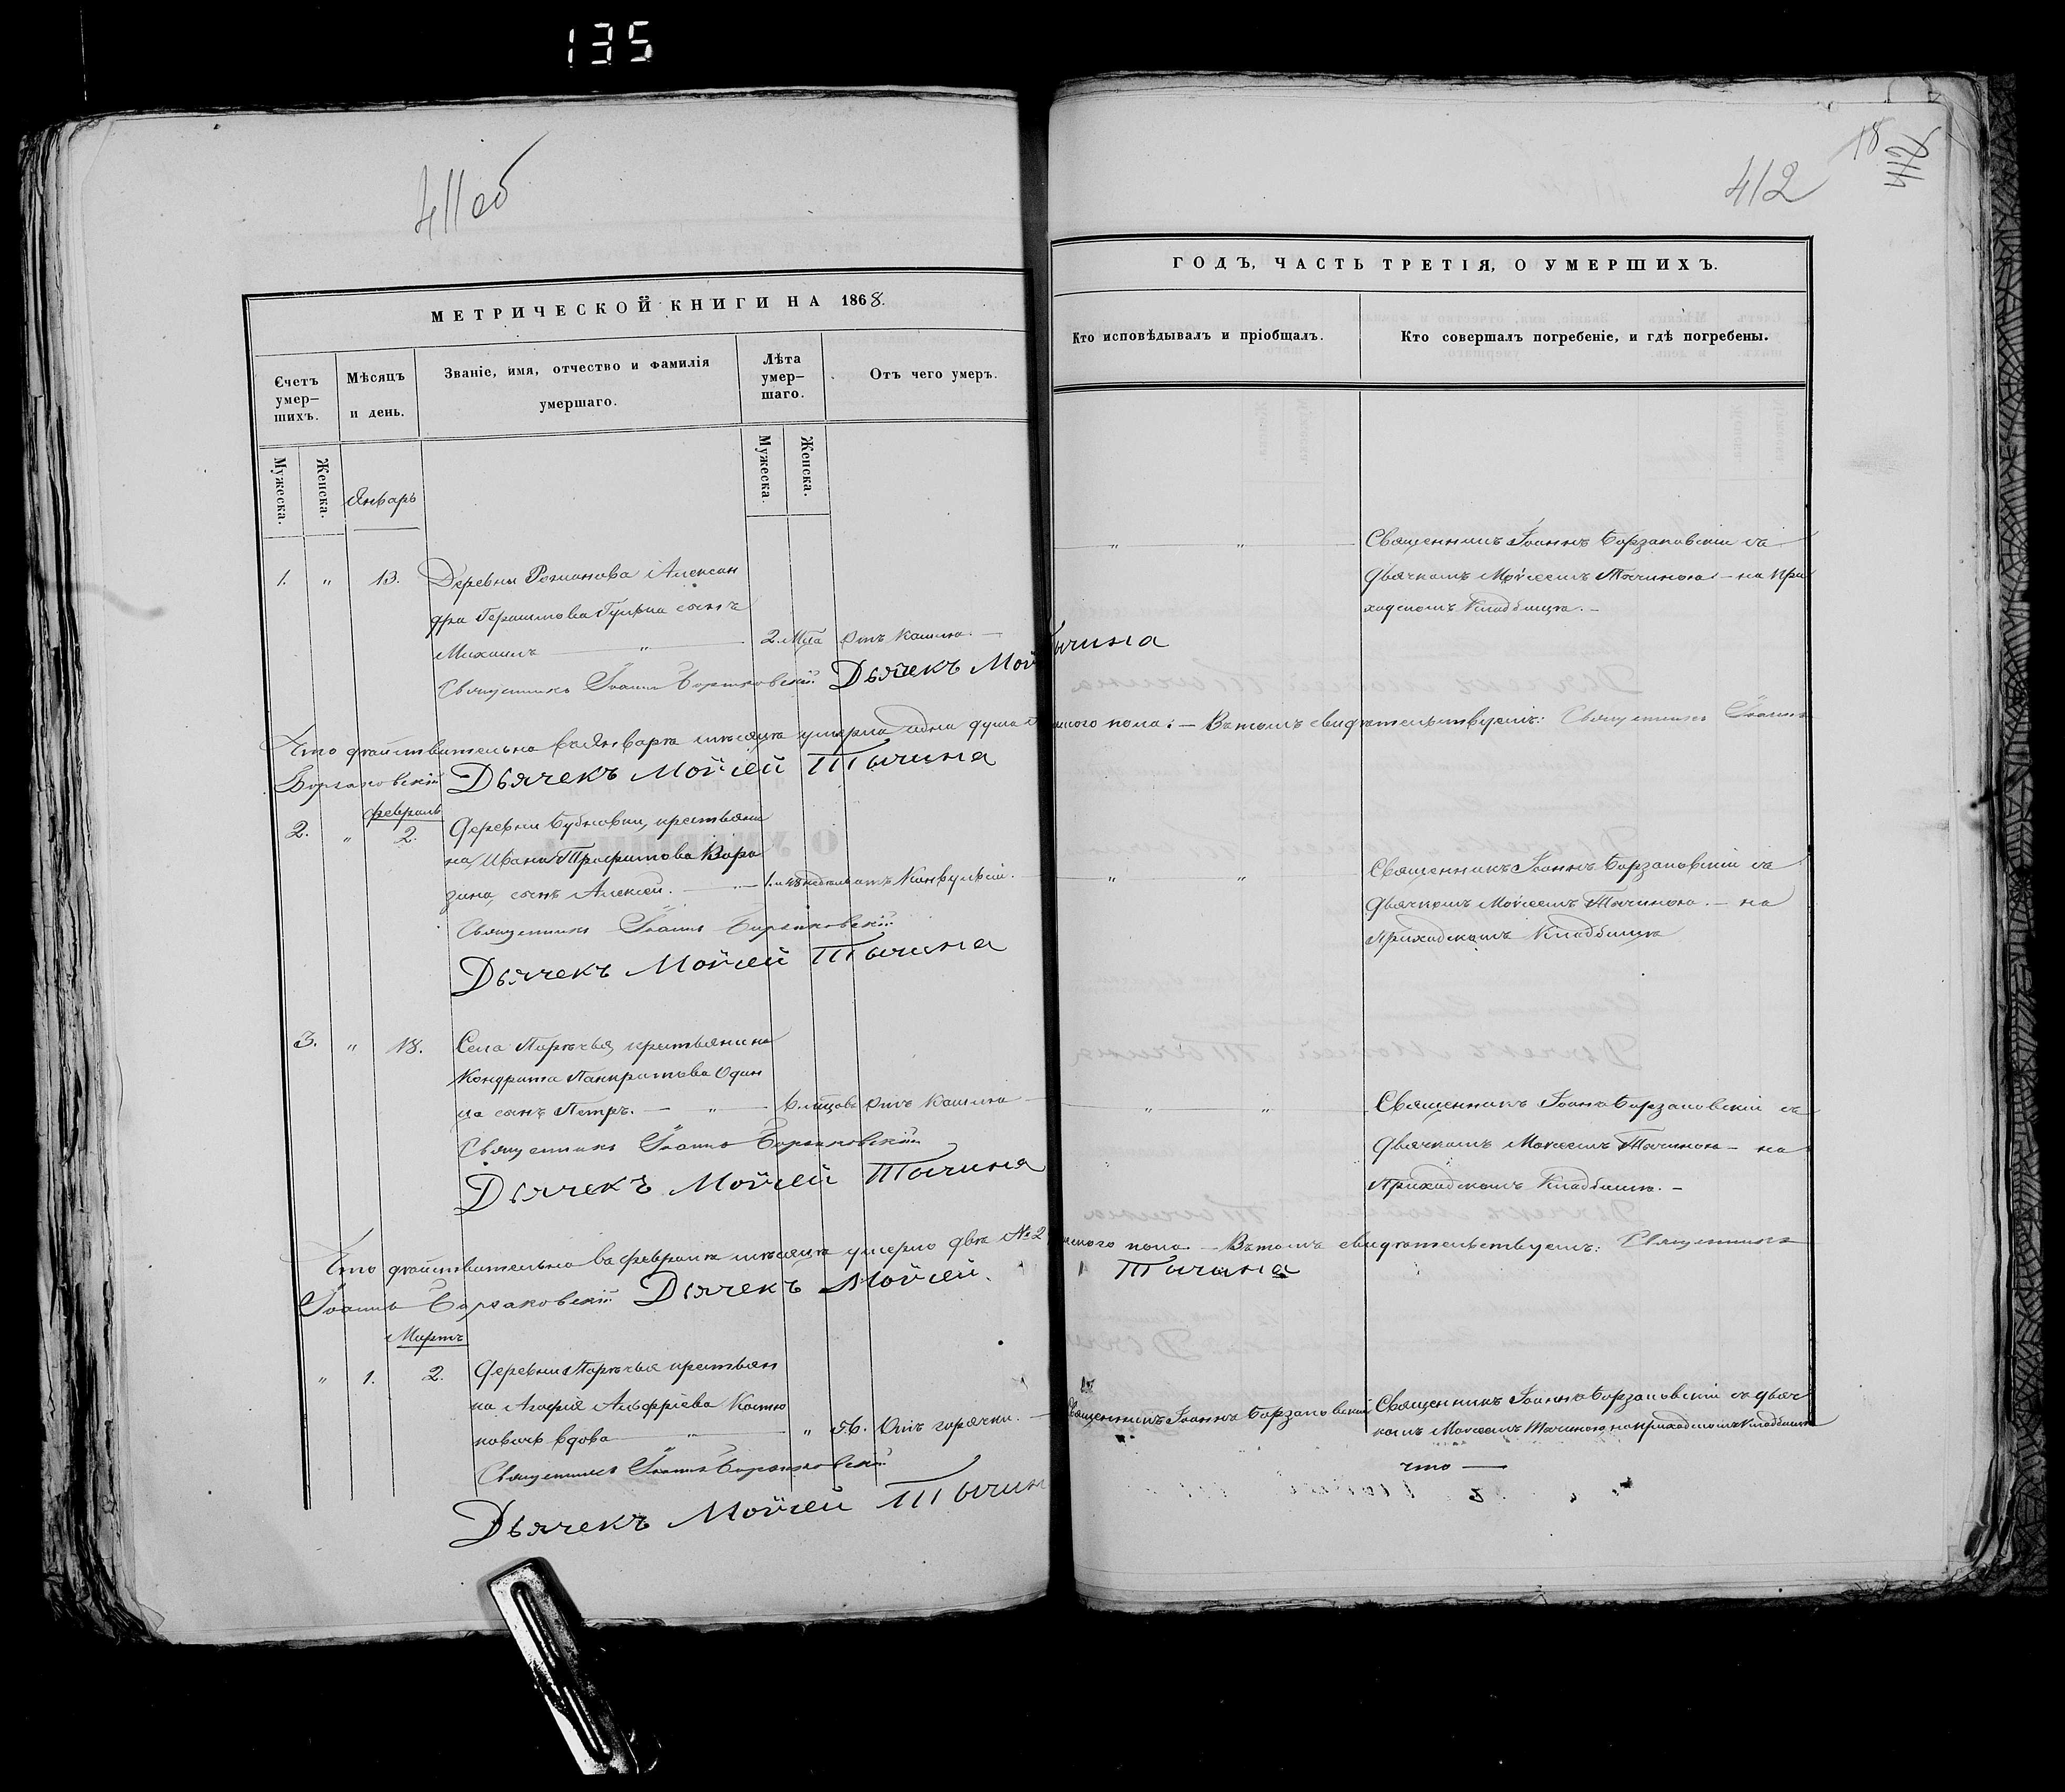 135
411об
МЕТРИЧЕСКОЙ КНИГИ НА 1868.
Счетъ умер-шихъ.
Мѣсяцъ и день.
Званіе, имя, отчество и фамилія умершаго.
Лѣта умер-шаго.
Отъ чего умеръ.
Мужеска.
Женска.
Январь
Мужеска.
Женска.
1. " 13. Деревни Романова Алексан
дра Герасимова сынъ
Михаилъ — " — 2. лѣта отъ кашлю. —
Священникъ Іоаннъ Борзаковскій Дьячекъ Мой
Что дѣйствительно въ Январѣ мѣсяцѣ умерла одна душа
Борзаковскій Дьячекъ Мойсей Тычина
Февраль
2. " 2. Деревни крестьяни
на Ивана Трофимова
сынъ Алексей. — " —
Священникъ Іоаннъ Борзаковскій
Дьячекъ Мойсей Тычина
3. " 18. Села Парѣчья, крестьянина
Кондрата Панкратьева Один
ца сынъ Петръ. — " — 6. мѣсцовъ отъ кашлю
Священникъ Іоаннъ Борзаковскій
Дьячекъ Мойсей Тычина
Что дѣйствительно въ Февралѣ мѣсяцѣ умерло двѣ № 2
Іоаннъ Борзаковскій Дьячекъ Мойсей.
Мартъ
" 1. 2. Деревни Парѣчья крестьян
ка Агафія
вдова — " — " 56. отъ горячки. —
Священникъ Іоаннъ Борзаковскій
Дьячекъ Мойсей Тычин
412
18
412
ГОДЪ, ЧАСТЬ ТРЕТІЯ, О УМЕРШИХЪ.
Кто исповѣдывалъ и пріобщалъ.
Кто совершалъ погребеніе, и гдѣ погребены.
" " Священникъ Іоаннъ Борзаковскій съ
дьячкомъ Мойсеемъ Тычиною. — на при
ходскомъ кладбищѣ. —
ычина
ского пола. — Въ томъ свидѣтельствуемъ: Священникъ Іоаннъ
" " Священникъ Іоаннъ Борзаковскій съ
дьячкомъ Мойсеемъ Тычиною. — на
приходскомъ кладбищѣ
" " Священникъ Іоаннъ Борзаковскій съ
дьячкомъ Мойсеемъ Тычиною — на
приходскомъ кладбищѣ. —
ского пола. — Въ томъ свидѣтельствуемъ: Священникъ
Тычина
Священникъ Іоаннъ Борзаковскій
Священникъ Іоаннъ Борзаковскій съ дьяч
комъ Мойсеемъ Тычиною, на приходскомъ кладбищѣ
что —